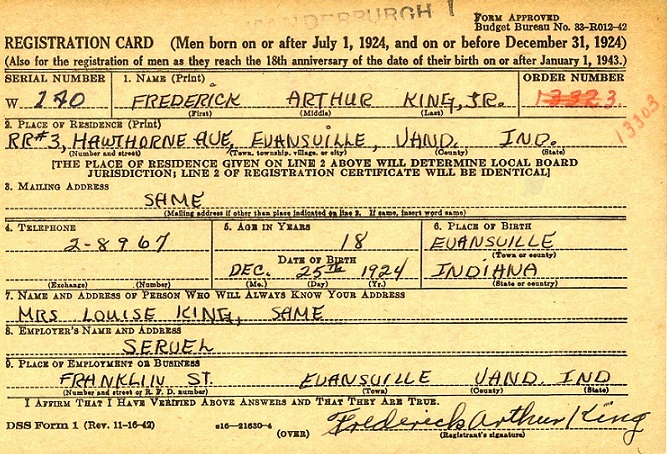 VANDERBURGH 1
FORM APPROVED
Budget Bureau No. 33-R012-42
REGISTRATION CARD (Men born on or after July 1, 1924, and on or before December 31, 1924)
(Also for the registration of men as they reach the 18th anniversary of the date of their birth on or after January 1, 1943.)
SERIAL NUMBER 1. NAME (Print) ORDER NUMBER
W 240 FREDERICK ARTHUR KING, JR. 13323
(First) (Middle) (Last) 13303
2. PLACE OF RESIDENCE (Print)
RR#3, HAWTHORNE AVE, EVANSVILLE, VAND. IND.
(Number and street) (Town, township, village, or city) (County) (State)
[THE PLACE OF RESIDENCE GIVEN ON LINE 2 ABOVE WILL DETERMINE LOCAL BOARD
JURISDICTION; LINE 2 OF REGISTRATION CERTIFICATE WILL BE IDENTICAL]
3. MAILING ADDRESS
SAME
(Mailing address if other than place indicated on line 2. If same, insert word same)
4. TELEPHONE 5. AGE IN YEARS 6. PLACE OF BIRTH
2-8967 18 EVANSVILLE
DATE OF BIRTH (Town or county)
DEC. 25TH 1924 INDIANA
(Exchange) (Number) (Mo.) (Day) (Yr.) (State or country)
7. NAME AND ADDRESS OF PERSON WHO WILL ALWAYS KNOW YOUR ADDRESS
MRS LOUISE KING, SAME
8. EMPLOYER'S NAME AND ADDRESS
SERVEL
9. PLACE OF EMPLOYMENT OR BUSINESS
FRANKLIN ST. EVANSVILLE VAND. IND
(Number and street or R. F. D. number) (Town) (County) (State)
I AFFIRM THAT I HAVE VERIFIED ABOVE ANSWERS AND THAT THEY ARE TRUE.
DSS Form 1 (Rev. 11-16-42) e16-21630-4 Frederick Arthur King
(OVER) (Registrant's signature)